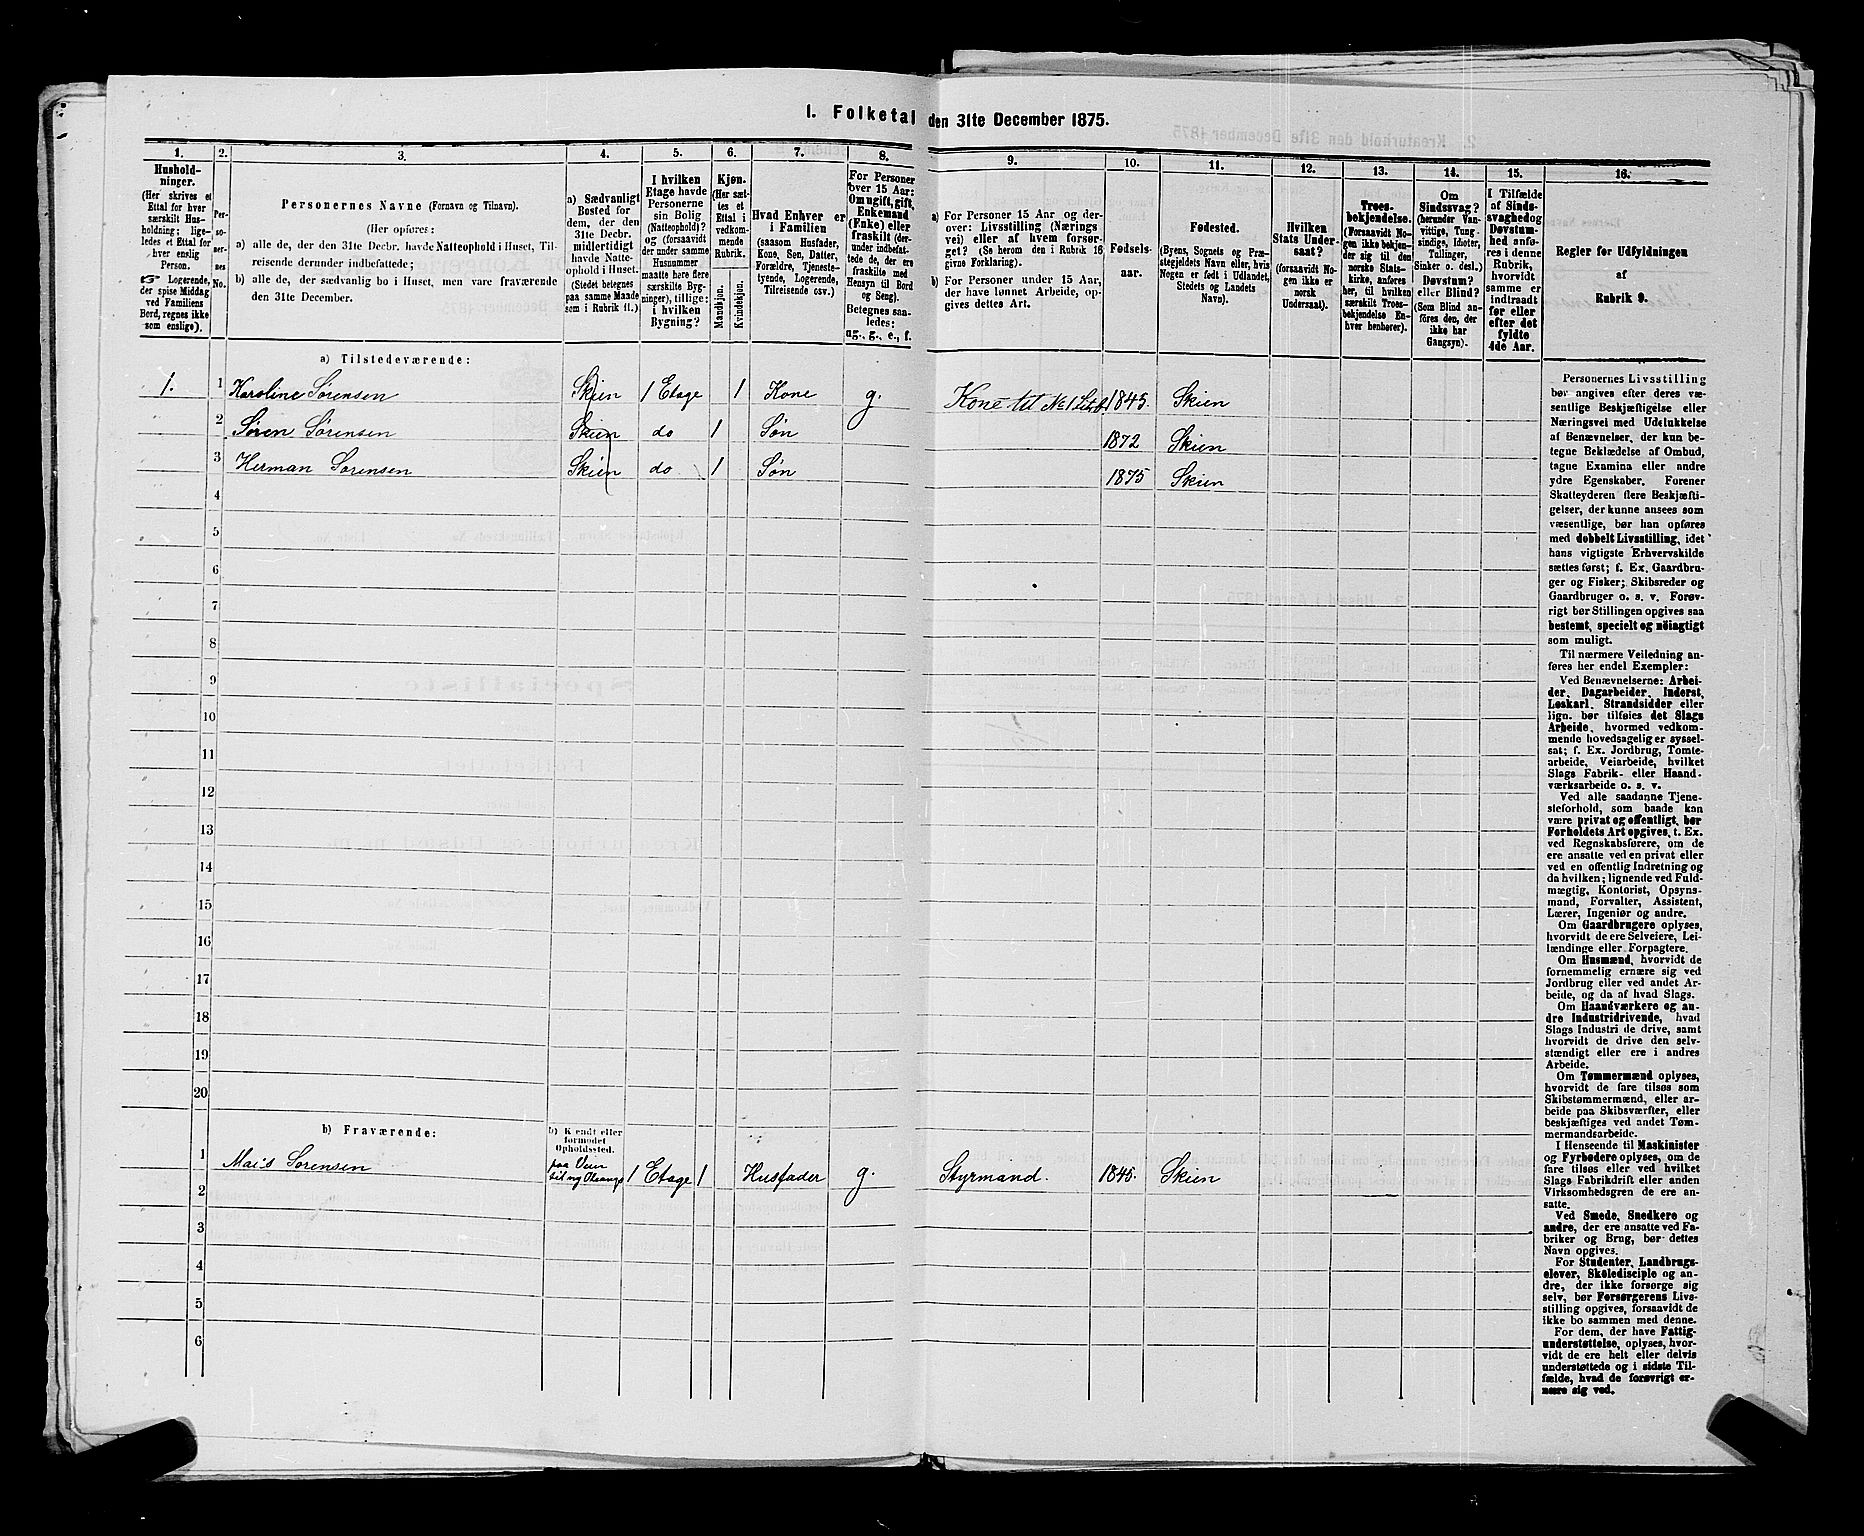 1. Folketal den 31te December 1875.
1. 2. 3. 4. 5. 6. 7. 8. 9. 10. 11. 12. 13. 14. 15. 16.
Hushold-
ninger.
(Her skrives et
Ettal for hver
særskilt Hus-
holdning; lige-
ledes et Ettal for
hver enslig
Person.
☞ Logerende,
der spise Middag
ved Familiens
Bord, regnes ikke
som enslige).
Per-
so-
ner-
nes
No.
Personernes Navne (Fornavn og Tilnavn).
(Her opføres:
a) alle de, der den 31te Decbr. havde Natteophold i Huset, Til-
reisende derunder indbefattede;
b) alle de, der sædvanlig bo i Huset, men vare fraværende
den 31te December.
a) Sædvanligt
Bosted for
dem, der den
31te Decbr.
midlertidigt
havde Natte-
ophold i Huset.
(Stedet betegnes
paa samme Maade
som i Rubrik 11.)
I hvilken
Etage havde
Personerne
sin Bolig
(Natteophold)?
og (forsaavidt
der under samme
Husnummer
maatte høre flere
særskilte Byg-
ninger), tillige:
i hvilken
Bygning?
Kjøn.
(Her sæt-
tes et
Ettal i
vedkom-
mende
Rubrik.
Mandkjøn.
Kvindekjøn.
Hvad Enhver er
i Familien
(saasom Husfader,
Kone, Søn, Datter,
Forældre, Tjeneste-
tyende, Logerende,
Tilreisende osv.)
For Personer
over 15 Aar:
Om ugift, gift,
Enkemand
(Enke) eller
fraskilt (der-
under indbefat-
tede de, der ere
fraskilte med
Hensyn til Bord
og Seng).
Betegnes saa-
ledes:
ug., g., e., f.
a) For Personer 15 Aar og der-
over: Livsstilling (Nærings
vei) eller af hvem forsør-
get? (Se herom den i Rubrik 16
givne Forklaring).
b) For Personer under 15 Aar,
der have lønnet Arbeide, op-
gives dettes Art.
Fødsels-
aar.
Fødested.
(Byens, Sognets og Præ-
stegjeldets Navn eller, hvis
Nogen er født i Udlandet,
Stedets og Landets
Navn).
Hvilken
Stats Under-
saat?
(forsaavidt No-
gen ikke er
norsk
Undersaat).
Troes-
bekjendelse.
(Forsaavidt No-
gen ikke bekjen-
der sig til den
norske Stats-
kirke, anføres
her, til hvilken
særskilt Troes-
bekjendelse En-
hver henhører).
Om
Sindssvag?
(herunder Van-
vittige, Tung-
sindige, Idioter,
Tullinger,
Sinker o. desl.)
Døvstum?
eller Blind?
(Som Blind an-
føres den, der
ikke har
Gangsyn).
I Tilfælde
af Sinds-
svaghed og
Døvstum-
hed anfø-
res i denne
Rubrik,
hvorvidt
samme er
indtraadt
før eller
efter det
fyldte
4de Aar.
Regler for Udfyldningen
af
Rubrik 9.
a) Tilstedeværende:
1. 1 Karoline Sørensen Skien 1 Etage 1 Kone g. Kone til No 1 1845. Skien
2 Søren Sørensen Skien do 1 Søn 1872 Skien
3 Herman Sørensen Skien do. 1 Søn 1875 Skien
4
5
6
7
8
9
10
11
12
13
14
15
16
17
18
19
20
b) Fraværende:
b) Kendt eller
formodet
Opholdssted.
1 Sorensen paa Veien til 1 Etage 1 Husfader g. Styrmand. 1845. Skien
2
3
4
5
6
Personernes Livsstilling
bør angives efter deres væ-
sentlige Beskjæftigelse eller
Næringsvei med Udelukkelse
af Benævnelser, der kun be-
tegne Beklædelse af Ombud,
tagne Examina eller andre
ydre Egenskaber. Forener
Skatteyderen flere Beskjæfti-
gelser, der kunne ansees som
væsentlige, bør han opføres
med dobbelt Livsstilling, idet
hans vigtigste Erhvervskilde
sættes først; f. Ex. Gaardbru-
ger og Fisker; Skibsreder og
Gaardbruger o. s. v. Forøv-
rigt bør Stillingen opgives saa
bestemt, specielt og nöiagtigt
som muligt.
Til nærmere Veiledning an-
føres her endel Exempler:
Ved Benævnelserne: Arbei-
der, Dagarbeider, Inderst,
Løskarl, Strandsidder eller
lign. bør tilføies det Slags
Arbeide, hvormed vedkom-
mende hovedsagelig er syssel-
sat; f. Ex. Jordbrug, Tomte-
arbeide, Veiarbeide, hvilket
Slags Fabrik- eller Haand-
værksarbeide o. s. v.
Ved alle saadanne Tjene-
steforhold, som baade kan
være privat og offentligt, bør
Forholdets Art opgives, t. Ex.
ved Regnskabsførere, om de
ere ansatte ved en privat eller
ved en offentlig Indretning og
da hvilken; lignende ved Fuld-
mægtig, Kontorist, Opsyns-
mand, Forvalter, Assistent,
Lærer, Ingeniør og andre.
Om Gaardbrugere oplyses,
hvorvidt de ere Selveiere, Lei-
lændinge eller Forpagtere.
Om Husmænd, hvorvidt de
fornemmelig ernære sig ved
Jordbrug eller ved andet Ar-
beide, og da af hvad Slags.
Om Haandværkere og an-
dre Industridrivende, hvad
Slags Industri de drive, samt
hvorvidt de drive den selv-
stændigt eller ere i andres
Arbeide.
Om Tømmermænd oplyses,
hvorvidt de fare tilsøs som
Skibstømmermænd, eller ar-
beide paa Skibsværfter, eller
beskjæftiges ved andet Tøm-
mermandsarbeide.
I Henseende til Maskinister
og Fyrbødere oplyses, om de
fare tilsøs eller ved hvilket
Slags Fabrikdrift eller anden
Virksomhedsgren de ere an-
satte.
Ved Smede, Snedkere og
andre, der ere ansatte ved Fa-
briker og Brug, bør dettes
Navn opgives.
For Studenter, Landbrugs-
elever, Skoledisciple og an-
dre, der ikke forsørge sig
selv, bør Forsørgerens Livs-
stilling opgives, forsaavidt de
ikke bo sammen med denne.
For dem, der have Fattig-
understøttelse, oplyses, hvor-
vidt de ere helt eller delvis
understøttede og i sidste Til-
fælde, hvad de forøvrigt er-
nære sig ved.